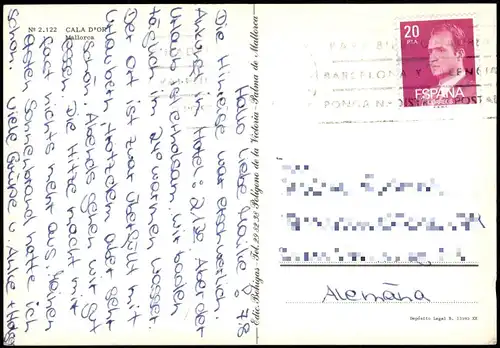 Nº 2.122 CALA D'OR
Mallorca
Hallo liebe Familie
Die Hinreise war
Ankunft im Hotel: 2.120. Aber der
Urlaub ist erholsam. Wir baden
täglich im 24° warmen Wasser.
Der Ort ist zwar überfüllt mit
Urlaubern, trotzdem aber sehr
schön. Abends gehen wir gut
essen. Die Hitze macht mir
fast nichts mehr aus. Keinen
Sonnenbrand hatte ich
schon. Viele Grüße u. Anke +
Edic. Bohigas Tel. Polígono de la Victoria Palma de Mallorca
20
PTA
ESPAÑA
BARCELONA Y VALENCIA
PONGA N.º DISTRITO POSTAL
Alemana
Depósito Legal B.